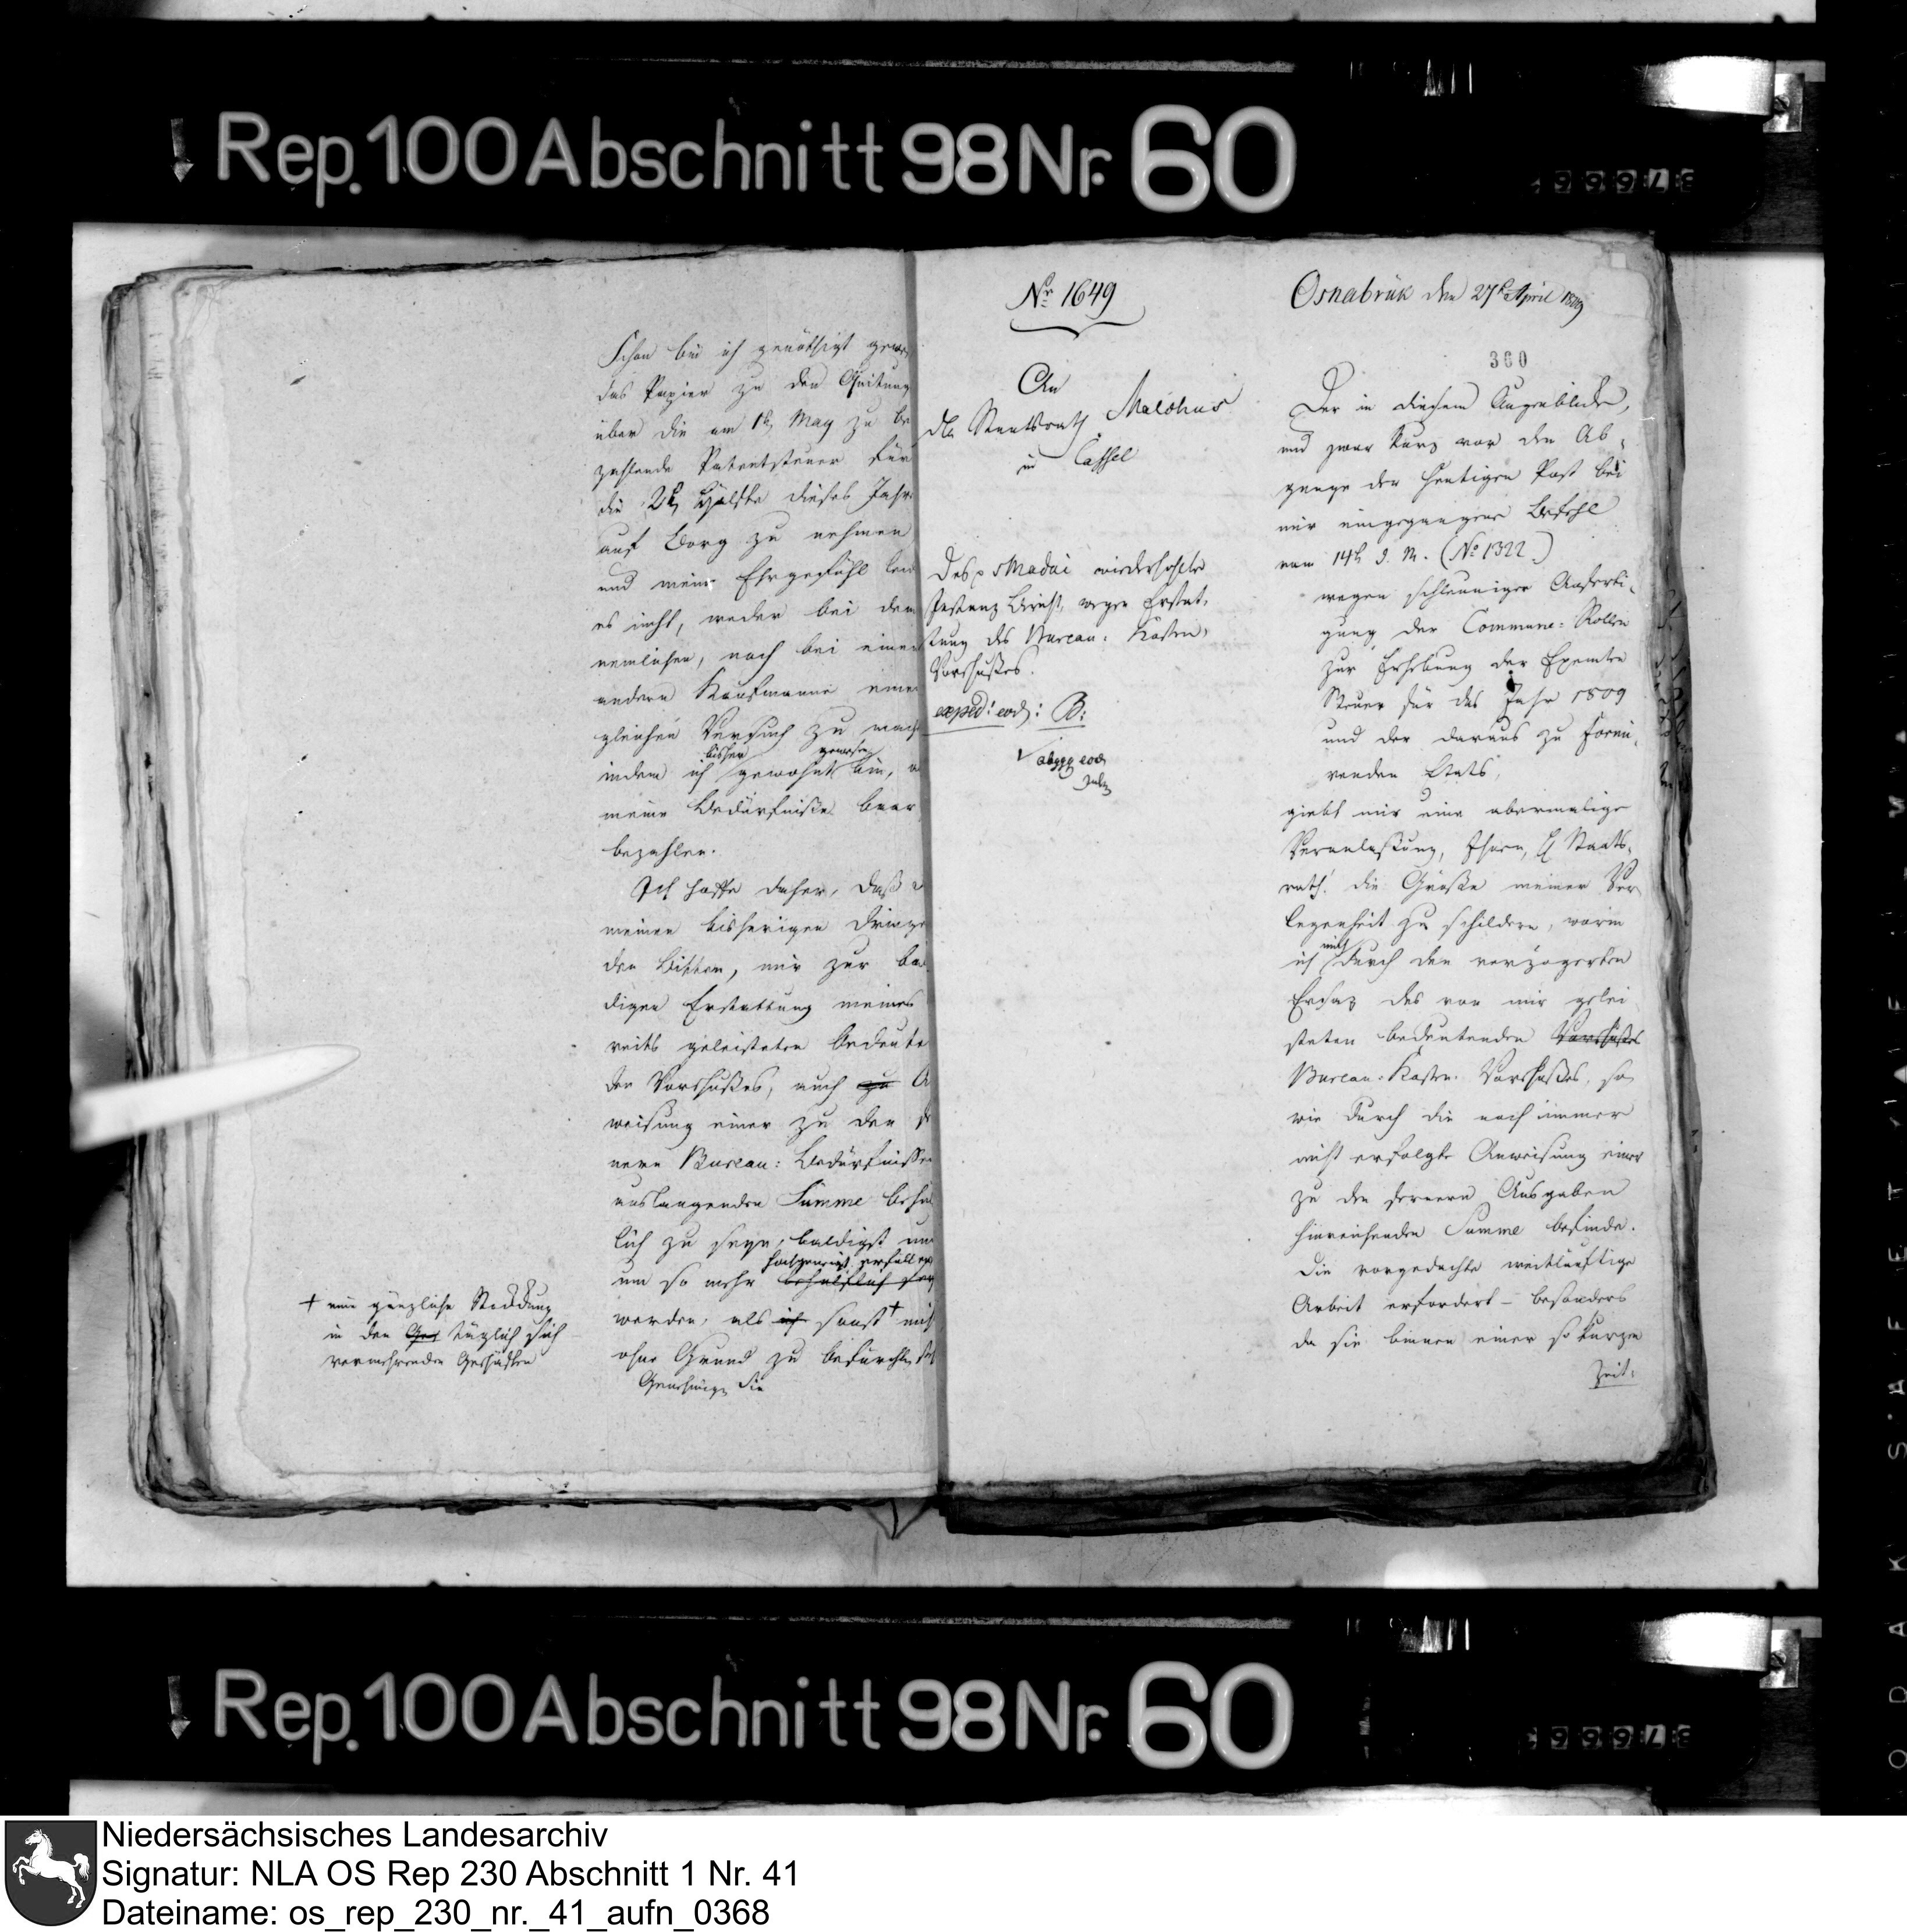 Rep. 100 Abschnitt 98 Nr. 60
Schon bin ich genöthigt gewes
das Papier zu den Quitung
über die am 1t May zu be
zahlende Patentsteuer für
die 2t Hälfte dieses Jahr
auf Borg zu nehmen
und mein Ehrgefühl lei
es nicht, weder bei dem
nemlichen, noch bei einem
andern Kaufmanne einen
gleichen Versuch zu mach
bisher gewesen
indem ich gewohnt bin,
meine Bedürfniße baar
bezahlen.
Ich hoffe daher, daß
meinen bisherigen dringe
den Bitten, mir zur bal
digen Erstattung meines
reits geleisteten bedeute
den Vorschußes, auch zu A
weisung einer zu den f
nern Bureau: Bedürfnissen
auslangenden Summe behü
lich zu seyn, baldigst um
hochgeneigt erfüllen
um so mehr behülflich
werden, als ich sonst + mich
ohne Grund zu befürchten
Genehmigen Sie
+ eine gänzliche Stockung
in den Ges täglich sich
vermehrenden Geschäften
No 1649
An
den Staatsrath Malchus
in Cassel
Des p v Madai wiederholte
Instanz Bericht, wegen Erstat,
tung des Bureau: Kosten,
Vorschußes.
exped: eod: B:
abgeg eod
Osnabrük den 27t April 1809
360
Der in diesem Augenblicke,
und zwar kurz vor dem Ab,
gange der heutigen Post bei
mir eingegangene Befehl
vom 14t d. M. (No 1322)
wegen schleuniger Anferti,
gung der Commune: Rollen
zur Erhebung der Exemten
Steuer für das Jahr 1809
und der daraus zu formi,
renden Etats,
giebt mir eine abermalige
Veranlaßung, Ihnen, H Staats,
rath! die Größe meiner Ver
legenheit zu schildern, worin
mich
ich durch den verzögerten
Ersaz des von mir gelei
steten bedeutenden Vorschußes
Bureau: Kosten: Vorschußes, so
wie durch die noch immer
nicht erfolgte Anweisung einer
zu den fernern Ausgaben
hinreichenden Summe befinde.
Die vorgedachte weitläuftige
Arbeit erfordert – besonders
da sie binnen einer so kurzen
Zeit:
Rep. 100 Abschnitt 98 Nr. 60
Niedersächsisches Landesarchiv
Signatur: NLA OS Rep 230 Abschnitt 1 Nr. 41
Dateiname: os_rep_230_nr._41_aufn_0368